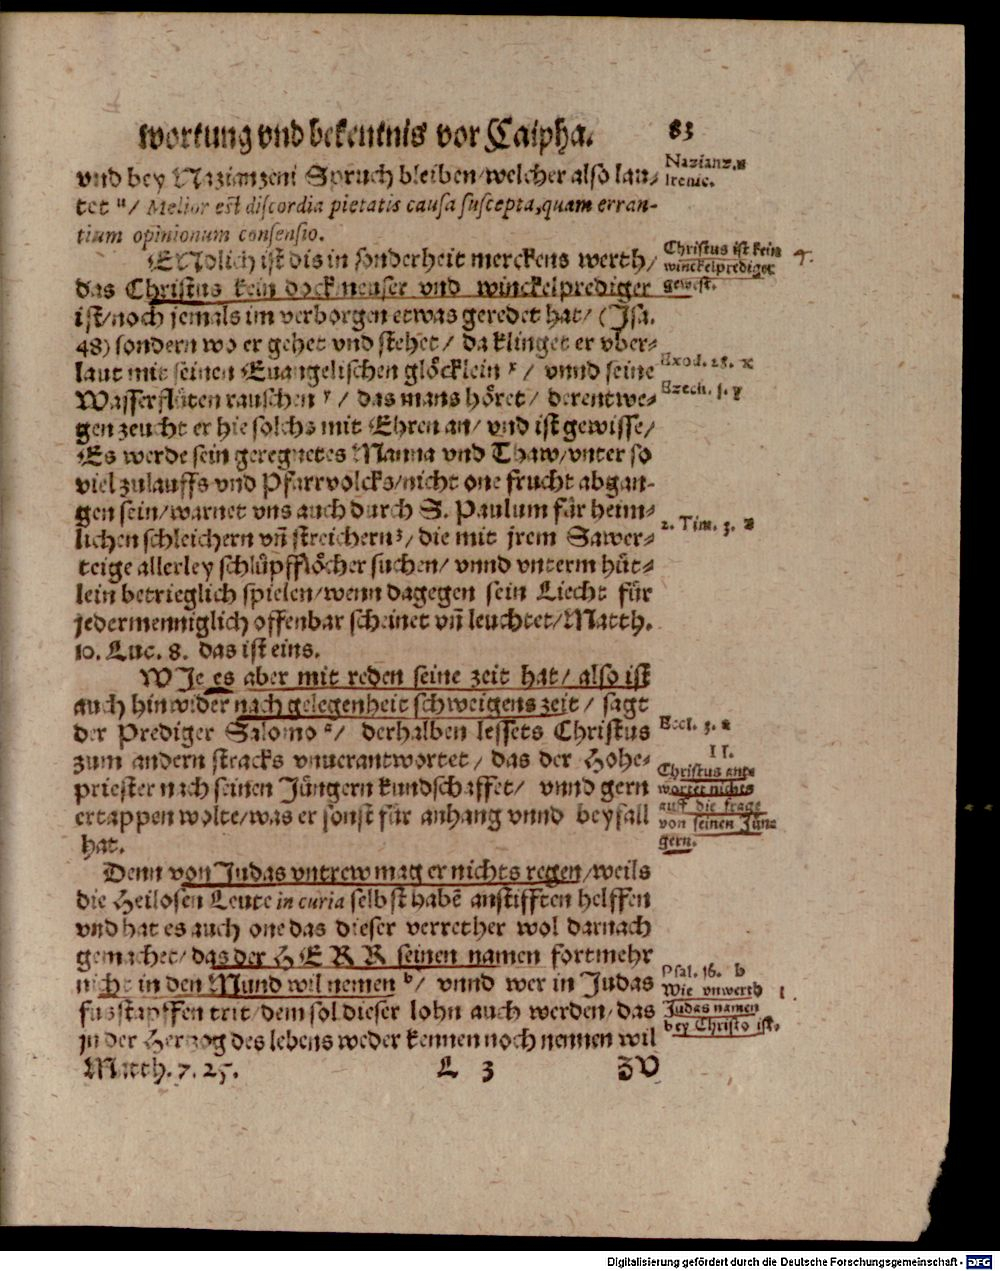 wortung vnd bekentnis vor Caipha. 83
vnd bey Nazianzeni Spruch bleiben/welcher also lau-
tet u/ Melior est discordia pietatis causa suscepta,quam erran-
tium opinionum consensio.
Nazianz.u
Irenic.
ENdlich ist dis in sonderheit merckens werth/
das Christus kein dockmeuser vnd winckelprediger
ist/noch jemals im verborgen etwas geredet hat/ (Jsa.
48) sondern wo er gehet vnd stehet/ da klinget er vber-
laut mit seinen Euangelischen glöcklein x/ vnnd seine
Wasserflüten rauschen y/ das mans höret/ derentwe-
gen zeucht er hie solchs mit Ehren an/ vnd ist gewisse/
Es werde sein geregnetes Manna vnd Thaw/vnter so
viel zulauffs vnd Pfarrvolcks/nicht one frucht abgan-
gen sein/warnet vns auch durch S. Paulum für heim-
lichen schleichern vñ streichern z/ die mit jrem Sawer-
teige allerley schlüpfflöcher suchen/ vnnd vnterm hüt-
lein betrieglich spielen/wenn dagegen sein Liecht für
jedermenniglich offenbar scheinet vñ leuchtet/Matth.
10. Luc. 8. das ist eins.
Christus ist kein
winckelprediger
gewest.
Exod. 28. x
Ezech. 1. y
2. Tim. 3. z
WJe es aber mit reden seine zeit hat/ also ist
auch hinwider nach gelegenheit schweigens zeit/ sagt
der Prediger Salomo a/ derhalben lessets Christus
zum andern stracks vnuerantwortet/ das der Hohe-
priester nach seinen Jüngern kundschaffet/ vnnd gern
ertappen wolte/was er sonst für anhang vnnd beyfall
hat.
Eccl. 3. a
II.
Christus ant-
wortet nichts
auff die frage
von seinen Jün-
gern.
Denn von Judas vntrew mag er nichts regen/weils
die Heilosen Leute in curia selbst habē anstifften helffen
vnd hat es auch one das dieser verrether wol darnach
gemachet/ das der HERR seinen namen fortmehr
nicht in den Mund wil nemen b/ vnnd wer in Judas
fusstapffen trit/ dem sol dieser lohn auch werden/ das
jn der Hertzog des lebens weder kennen noch nennen wil
Psal. 16. b
Wie vnwerth
Judas namen
bey Christo ist.
Matth. 7. 25. L 3 ZV
Digitalisierung gefördert durch die Deutsche Forschungsgemeinschaft - DFG